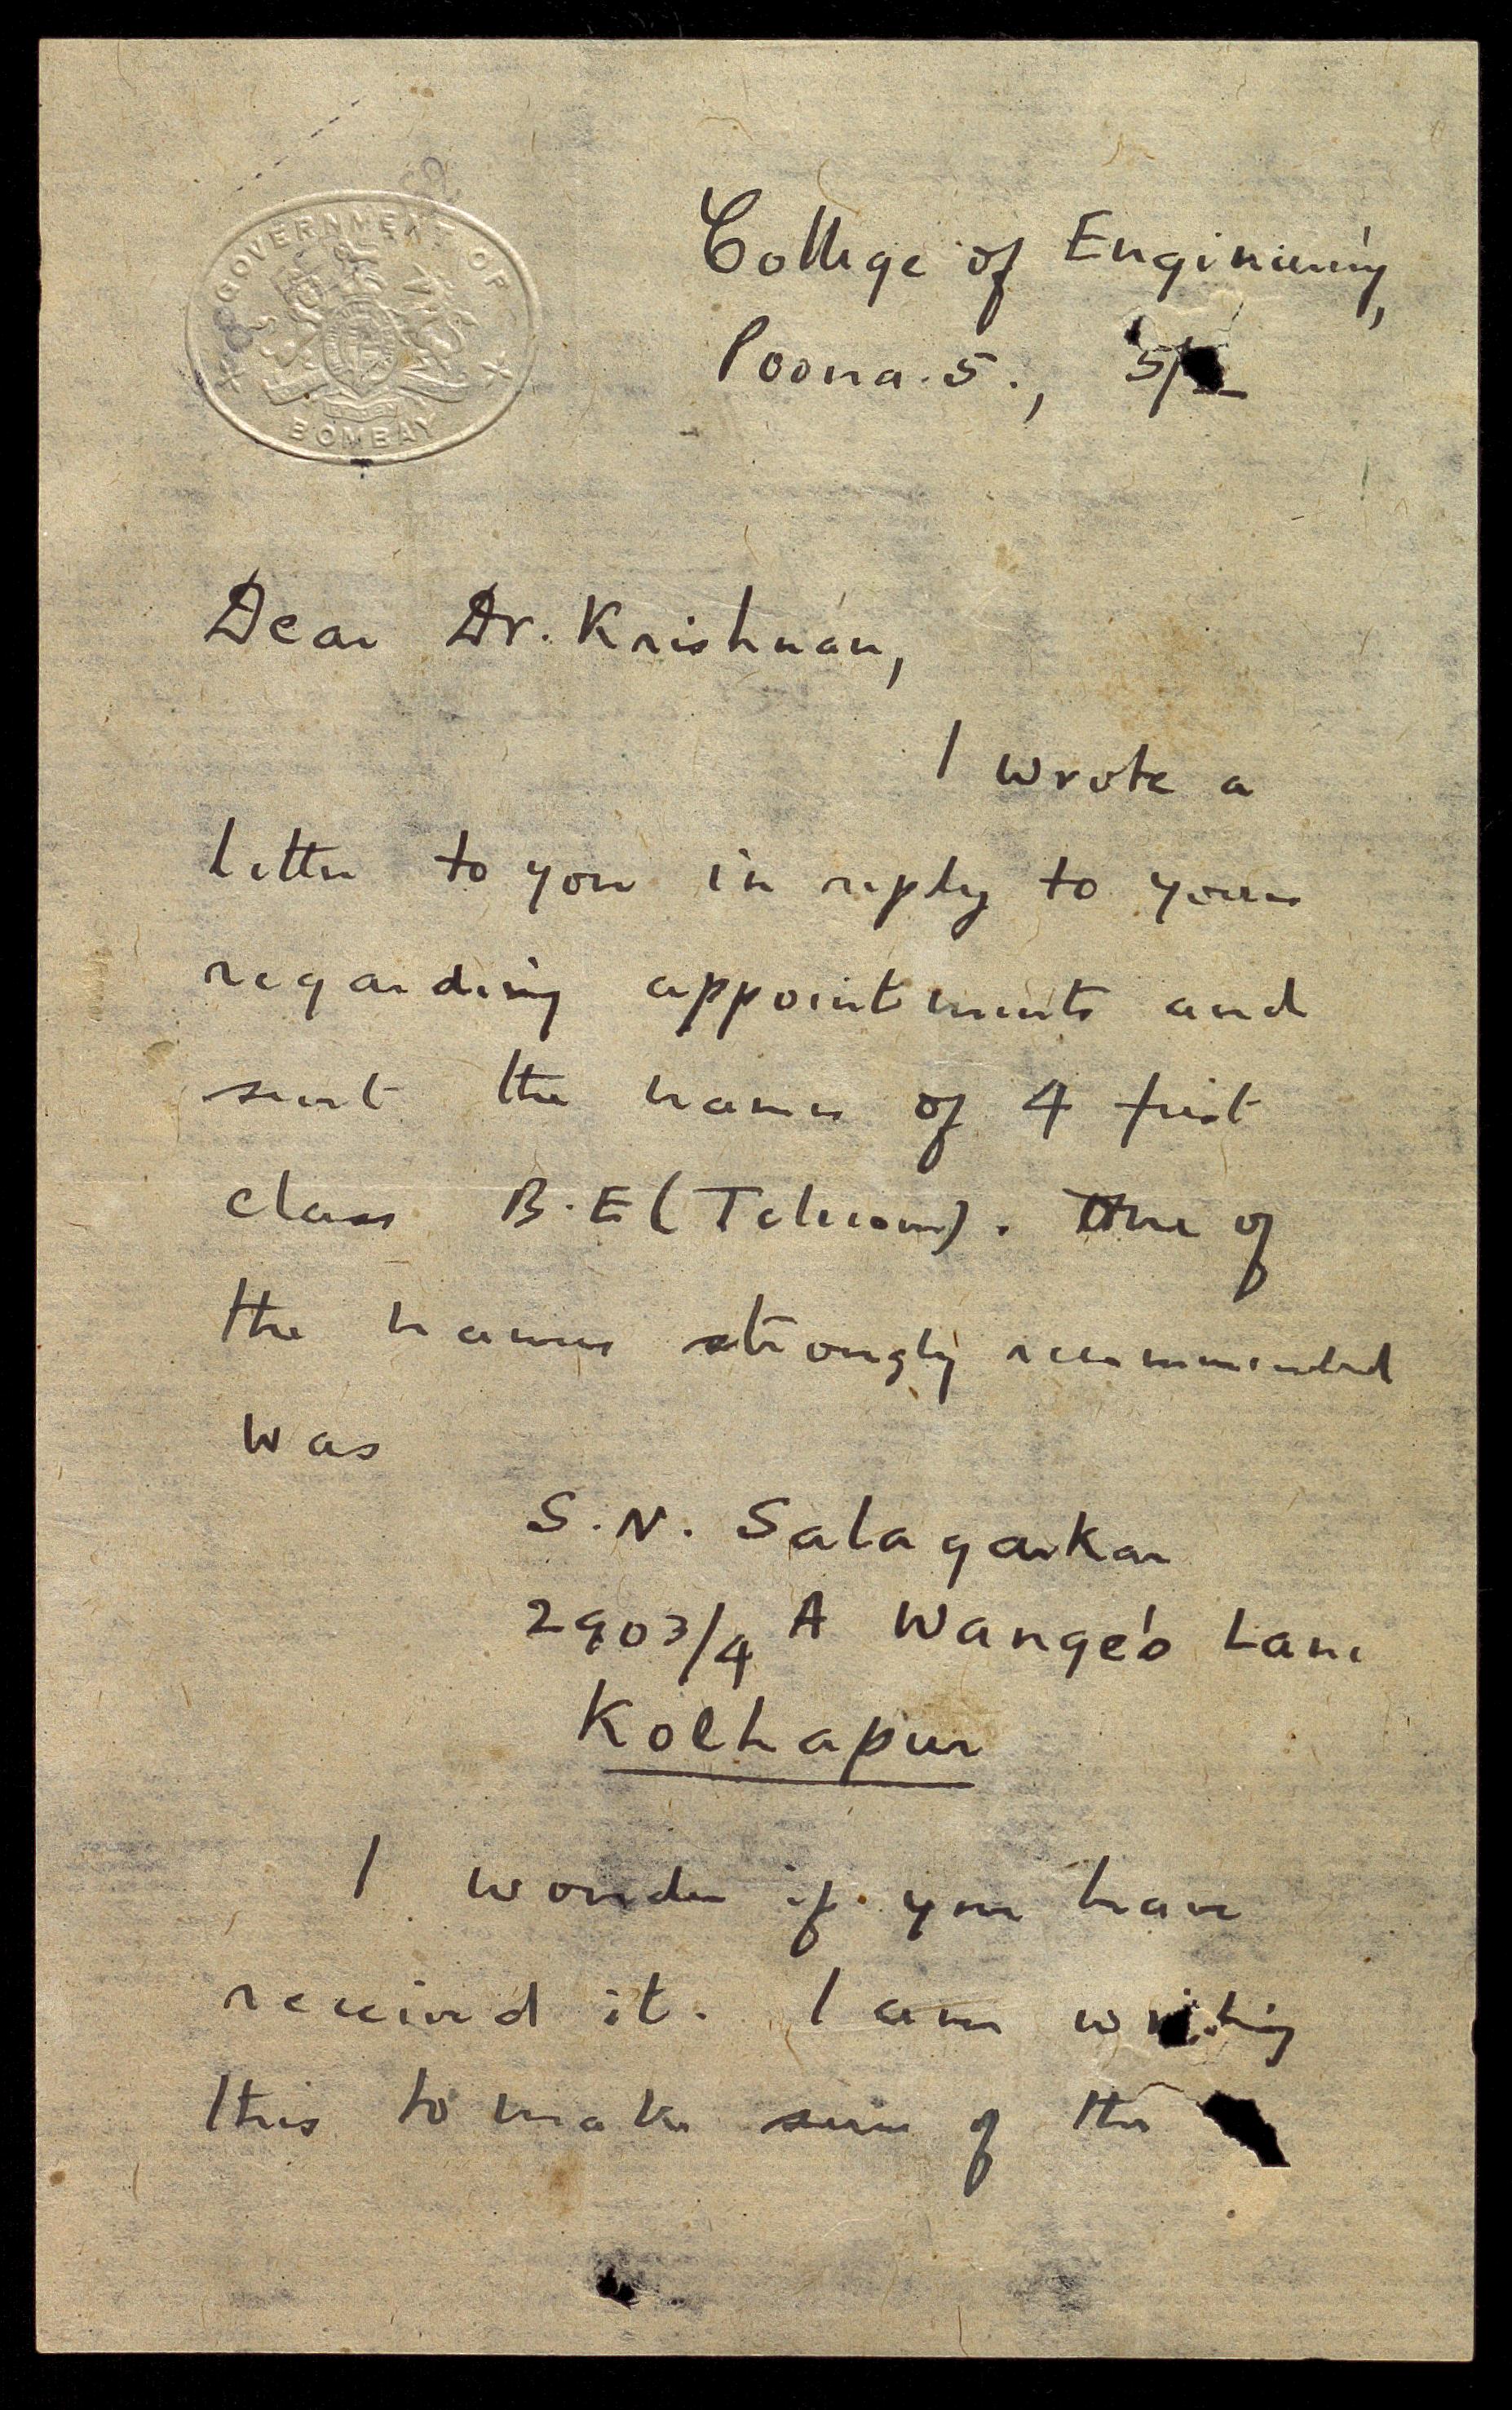 GOVERNMENT OF
BOMBAY
College of Engineering,
Poona.5., 5/
Dear Dr. Krishnan,
I wrote a
letter to you in reply to yours
regarding appointments and
sent the names of 4 first
class B.E (Telecom). One of
the names strongly recommended
was
S.N. Salagarkar
2903/4 A Wange's Lane
Kolhapur
I wonder if you have
received it. I am writing
this to make sure of the